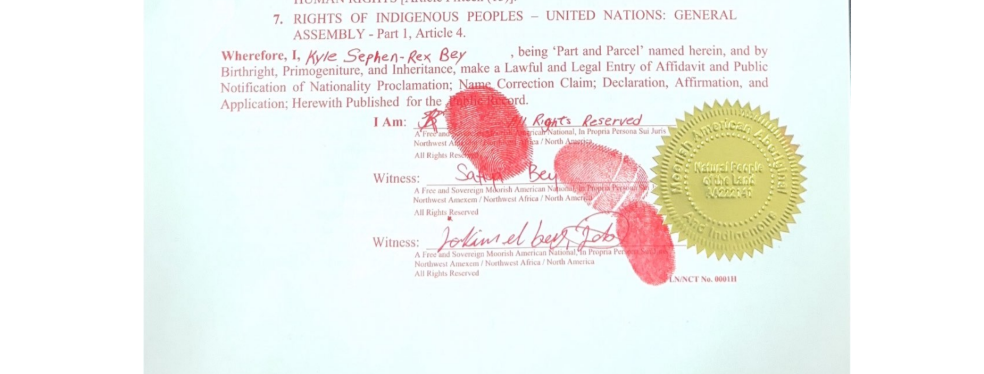 HUMAN RIGHTS [Article Fifteen (15)].
7. RIGHTS OF INDIGENOUS PEOPLES – UNITED NATIONS: GENERAL
ASSEMBLY - Part 1, Article 4.
Wherefore, I, Kyle Sephen-Rex Bey , being 'Part and Parcel' named herein, and by
Birthright, Primogeniture, and Inheritance, make a Lawful and Legal Entry of Affidavit and Public
Notification of Nationality Proclamation; Name Correction Claim; Declaration, Affirmation, and
Application; Herewith Published for the Public Record.
I Am: All Rights Reserved
A Free and American National, in Propria Persona Sui Juris
Northwest Africa / North America
All Rights Reserved
Witness: Bey
A Free and Sovereign Moorish American National, in Propria Persona Sui
Northwest Amexem / Northwest Africa / North America
All Rights Reserved
Witness:
A Free and Sovereign Moorish American National, in Propria Persona
Northwest Amexem / Northwest Africa / North America
All Rights Reserved
Moorish American Aboriginal
Natural People
of the Land
And Indigenous
LN/NCT No. 0001H